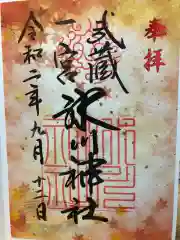 奉拝
武蔵
一宮
氷川神社
令和二年九月廿二日